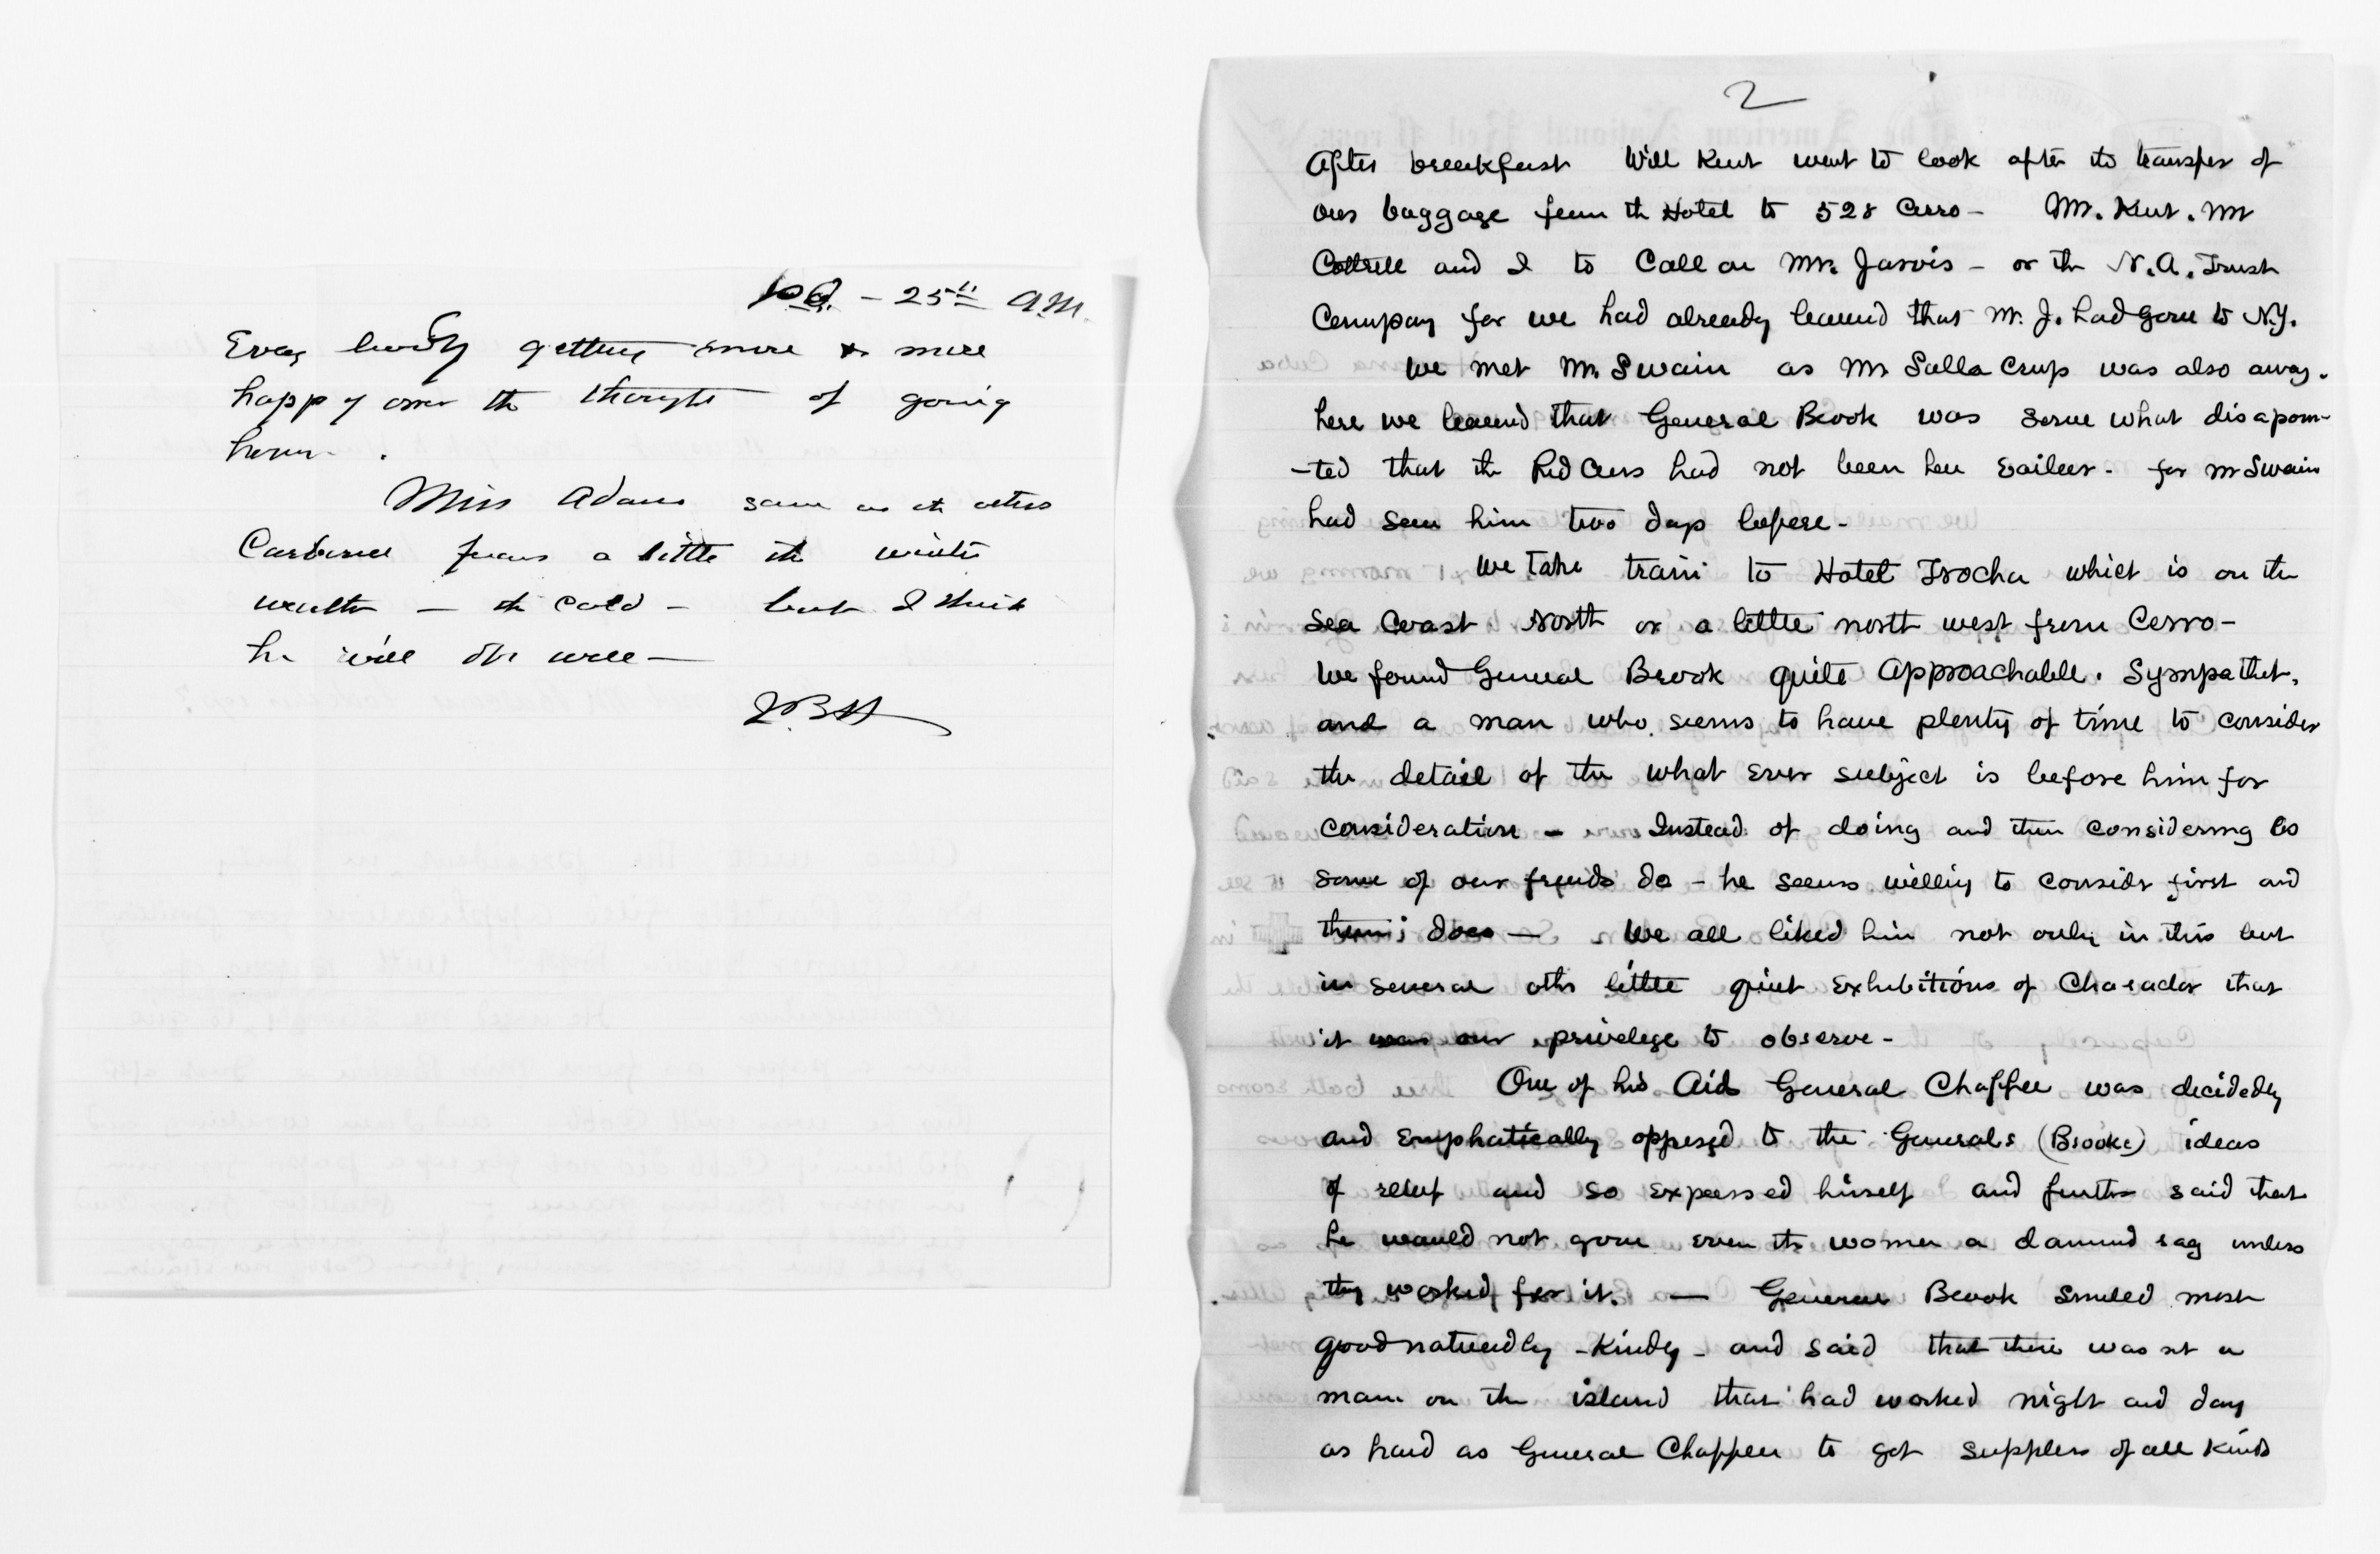 25th A.M.
Every body getting more & more
happy over the thought of going
home.
Miss Adams same as the others
fears a little the winter
weather — the cold — but I think
he will do well —
JBH
2
After breakfast Will Kent went to look after the transfer of
our baggage from the Hotel to 528 Cerro — Mr. Kent. Mr
Cottrell and I to Call on Mr. Jarvis — or the N.A. Trust
Company for we had already learned that Mr. J. had gone to N.Y.
We met Mr. Swain as Mr was also away.
here we learned that General Brook was some what disapoin-
-ted that the Red Cross had not been here earlier — for Mr Swain
had seen him two days before —
We take train to Hotel Trocha which is on the
Sea Coast North or a little north west from Cerro —
We found General Brook quite Approachable. Sympathet.
and a man who seems to have plenty of time to consider
the detail of the what ever subject is before him for
consideration — Instead of doing and then considering as
some of our friends do — he seems willing to consider first and
then; does — We all liked him not only in this but
in several other little quiet exhibitions of Character that
it was our privelege to observe —
One of his Aid General Chaffee was decidedly
and emphatically oppesed to the Generals (Brooks) ideas
of relief and so expressed himself and further said that
he would not give even the women a damned rag unless
they worked for it. — General Brook smiled most
good naturedly — Kindly — and said that there was not a
man on the island that had worked night and day
as hard as General Chaffee to get supplies of all Kinds